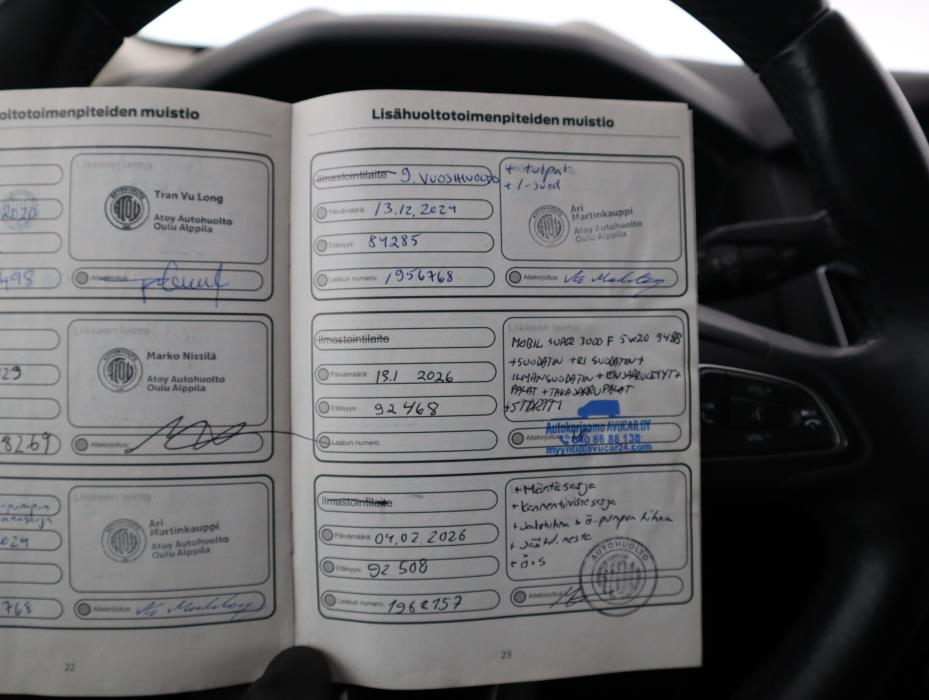 oltotoimenpiteiden muistio
Tran Vu Long
Atoy Autohuolto
Oulu Alppila
2020
498
Allekirjoitus:
Liikkeen leima
Marko Nissilä
Atoy Autohuolto
Oulu Alppila
123
8269
Allekirjoitus:
Liikkeen leima
Ari
Martinkauppi
Atoy Autohuolto
Oulu Alppila
024
768
Allekirjoitus:
22
Lisähuoltotoimenpiteiden muistio
Ilmastointilaite 9. VUOSIHUOLTO
Päivämäärä: 13.12.2024
Etäisyys: 84285
Laskun numero: 1956768
+ tulpat
+ i-suod
Ari
Martinkauppi
Atoy Autohuolto
Oulu Alppila
Allekirjoitus:
Ilmastointilaite
Päivämäärä: 13.1 2026
Etäisyys: 92468
Laskun numero:
Liikkeen leima
MOBIL SUPER 3000 F 5W20
+SUODATIN +RI SUODATIN+
ILMANSUODATIN +
PALAT + TAKAJARRUPALAT
+STARTTI
Autokorjaamo AVUCAR OY
040 66 88 138
myynti@avucar24.com
Allekirjoitus:
Ilmastointilaite
Päivämäärä: 04.02.2026
Etäisyys: 92508
Laskun numero:
+ Mäntäsarja
+ kannentiivistesarja
+ Jakohihna + ö-pumpun hihna
+ jäähd. neste
+ ö+s
AUTOHUOLTO
ATOY
Allekirjoitus:
23